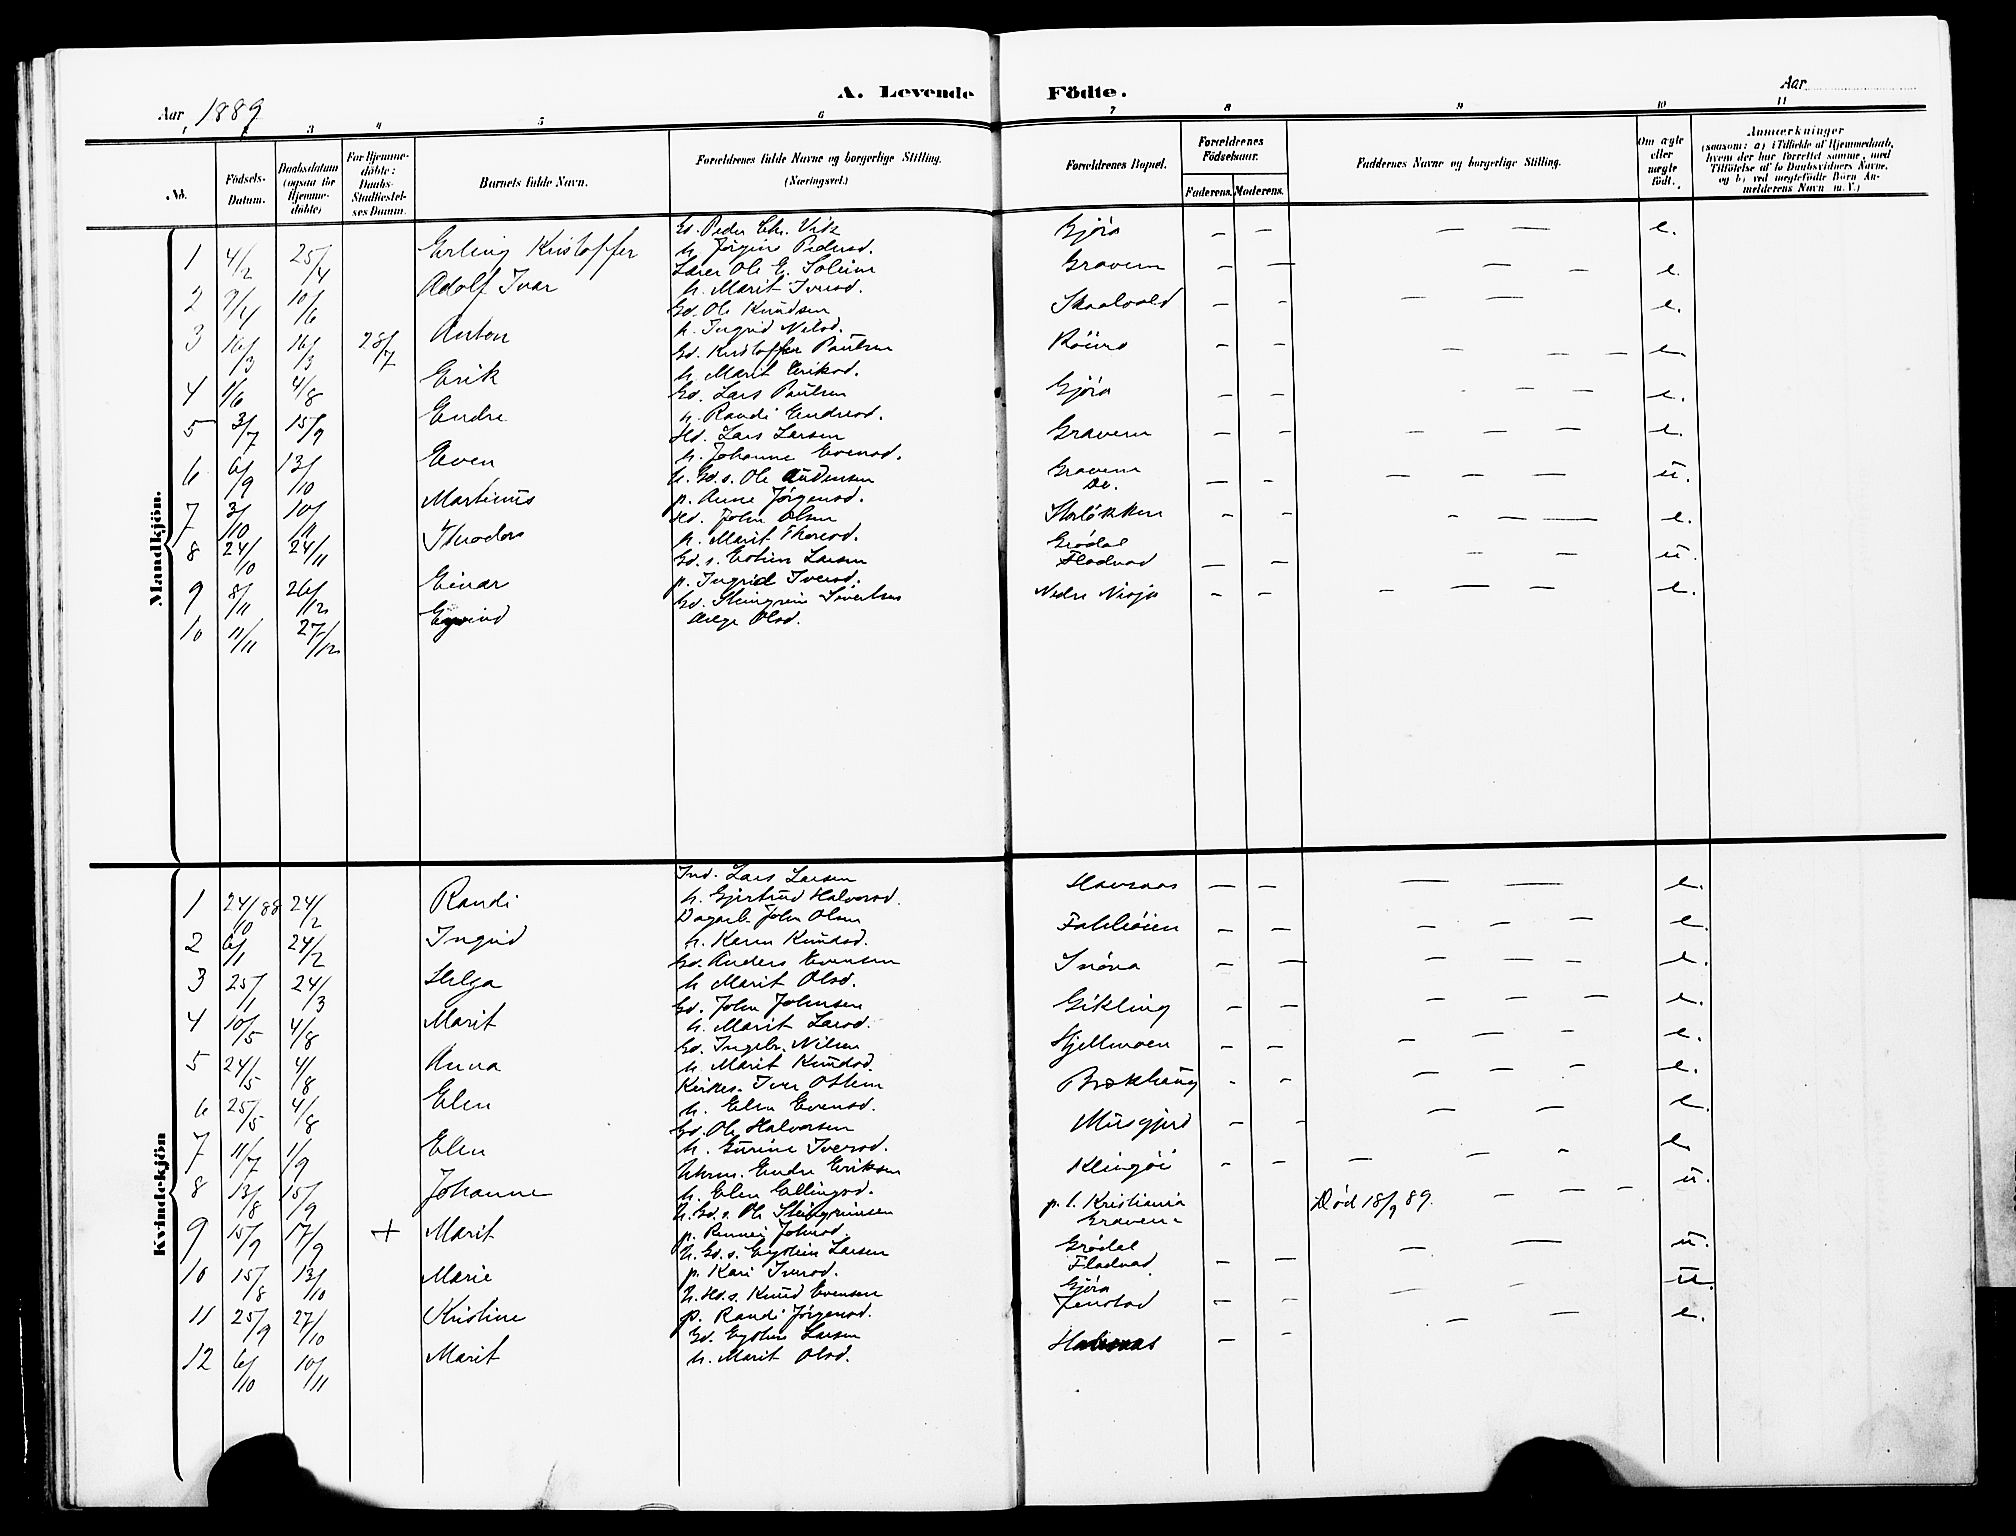 Aar 1889
A. Levende Födte.
Aar
1 2 3 4 5 6 7 8 9 10 11
No.
Födsels-Datum.
Daabsdatum (ogsaa for Hjemme-döbte)
For Hjemme-döbte: Daabs-Stadfæstelses Datum.
Barnets fulde Navn.
Forældrenes fulde Navne og borgerlige Stilling. (Næringsvei.)
Forældrenes Bopæl.
Forældrenes Födselsaar.
Faderens. Moderens.
Faddernes Navne og borgerlige Stilling.
Om ægte eller uægte födt.
Anmærkninger
(saasom: a) i Tilfælde af Hjemmedaab, hvem der har forrettet samme, med Tilföielse af to Daabsvidners Navne, og b) ved uægtefödte Börn Anmelderens Navn m. V.)
Mandkjön.
1 4/2 25/4 Erling Kristoffer Gd. Peder Chr. Vik Gjöra — — — — e.
h. Jörgine Pedersd.
2 7/4 10/6 Adolf Ivar Lærer Ole E. Soleim Gravem — — — — e.
h. Marit Iversd.
3 16/3 16/3 28/7 Anton Gd. Ole Knudsen Skaalvold — — — — e.
h. Ingrid Nilsd.
4 1/6 4/8 Erik Gd. Kristoffer Paulsen — — — — — e.
h. Marit Eriksd.
5 3/7 15/9 Endre Gd. Lars Paulsen Gjöra — — — — e.
h. Randi Endresd.
6 6/9 13/10 Even Hd. Lars Larsen Gravem — — — — — e.
h. Johanne Evensd.
7 3/10 10/11 Martinus U. Gd. s. Ole Audensen Gravem — — — — — u.
p. Anne Jörgensd. Do.
8 24/10 24/11 Theodor Hd. John Olsen Storløkken — — — — — e.
h. Marit Thoresd.
9 8/11 26/12 Einar Gd. s. Esten Larsen Grödal — — — — u.
p. Ingrid Iversd. Fladvad
10 11/11 27/12 Eyvind Gd. Steingrim Sivertsen Nedre Nisja — — — — — e.
Olsd.
Kvindekjön
1 24/10 88 24/2 Randi Ind. Lars Larsen Havsaas — — — — e.
h. Gjertrud Halvorsd.
2 6/1 24/2 Ingrid Dagarb. John Olsen Fahlröien — — — — — e.
h. Karen Knudsd.
3 25/1 24/3 Helga Gd. Anders Evensen Snöva — — — — — e.
h Marit Olsd.
4 10/5 4/8 Marit Gd. John Johnsen Gikling — — — — — e.
h. Marit Larsd.
5 24/5 4/8 Anna Gd. Ingebr. Nilsen Hjellmoen — — — — — e.
h. Marit Knudsd.
6 25/5 4/8 Elen Kirkes. Iver Brækhaug — — — — — e.
h. Elen Evensd.
7 11/7 1/9 Elen Gd. Ole Halvorsen Musgjerd — — — — e.
h. Gurine Iversd.
8 13/8 15/9 Johanne Endre Eriksen Klingöi — — — — — e
h. Elen Ellingsd.
9 15/9 17/9 + Marit U. Gd. s. Ole Steingrimsen p. t. Kristiania Död 18/9 89. — — — u.
p. Johnsd. Gravem
10 15/8 13/10 Marie U. Gd. s. Eystein Larsen Grödal — — — — u.
p. Kari Iversd. Fladvad
11 25/9 27/10 Kristine U. Hd. s. Knud Evensen Gjöra — — — — u.
p. Randi Jörgensd. Jenstad
12 6/10 10/11 Marit Gd. Eystein Larsen Havsaas — — — — e.
h. Marit Olsd.